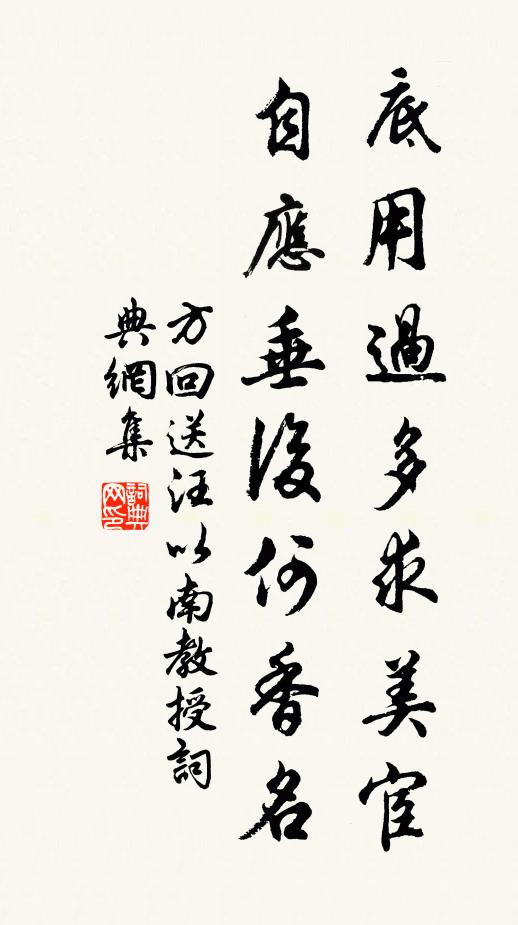 底用過多求美宦
自應垂後何香名
方回送汪以南教授詞
典網集
詞典
网印